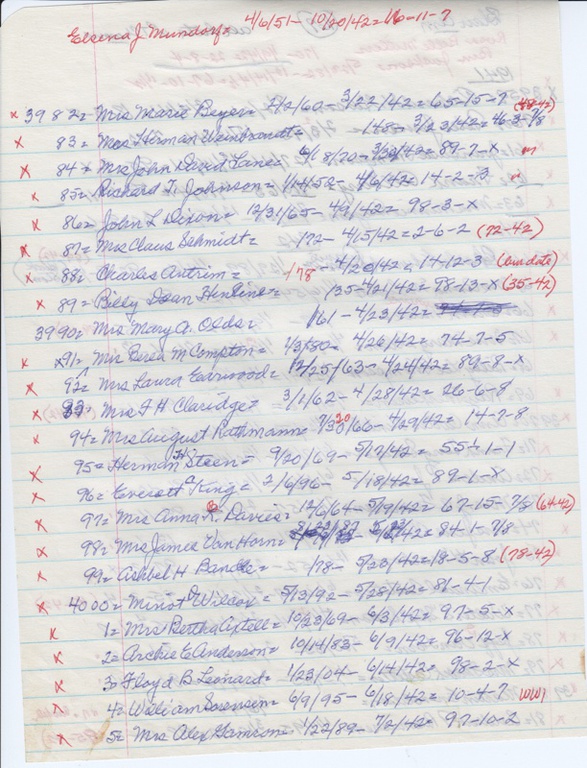 Elsena J. Mundorf= 4/6/51- 10/20/42=16-11-7
x 3982= Mrs Marie Beyer= 2/2/60- 3/22/42=65-15-7 (48-42)
x 83= Mrs Herman Weinbrandt= 1485- 3/23/42=46-3-7/8
x 84= Mrs John David Lane= 6/18/70- 3/30/42=89-7-x
x 85= Richard T. Johnson= 1/14/52- 4/6/42=14-2-13
x 86= John L Dixon= 12/31/65- 4/9/42=98-3-x
x 87= Mrs Claus Schmidt= 172- 4/15/42=2-6-2 (72-42)
x 88= Charles Antrim= 178 -4/20/42=14-12-3 (our date)
x 89= Billy Dean Henline= 135-4/21/42=78-13-x (35-42)
3990= Mrs Mary A. Olds= 1/61- 4/23/42=
x x91= Mrs M Compton= 1/3/80= 4/26/42= 74-7-5
x 92= Mrs Laura = 12/25/63- 4/24/42=89-8-x
x 93= Mrs F H Claridge= 3/1/62- 4/28/42= 26-6-8
x 94= Mrs August Rathmann= 7/30/66- 4/29/42= 14-7-8
x 95= Herman H Steen= 9/20/69- 5/17/42= 55-1-1
x 96= Everett C King= 2/6/96- 5/18/42=89-1-x
x 97= Mrs Anna B. Davies= 12/6/64- 5/19/42= 67-15-7/8 (64-42)
x 98= Mrs James Van Horn= 84-1-7/8
x 99= Ashbel H Bande= 178- 5/23/42=18-5-8 (78-42)
x 4000= Minot D Wilcox= 5/13/92- 5/28/42=81-4-1
x 1= Mrs Bertha Axtell= 10/23/69- 6/3/42= 97-5-x
x 2= Archie E Anderson= 10/14/83- 6/9/42= 96-12-x
x 3= Floyd B Leonard= 1/23/04- 6/14/42= 98-2-x
x 4= William Sorensen= 6/9/95- 6/18/42= 10-4-7 WW1
x 5= Mrs Alex Gamison= 1/22/89- 7/2/42= 97-10-2